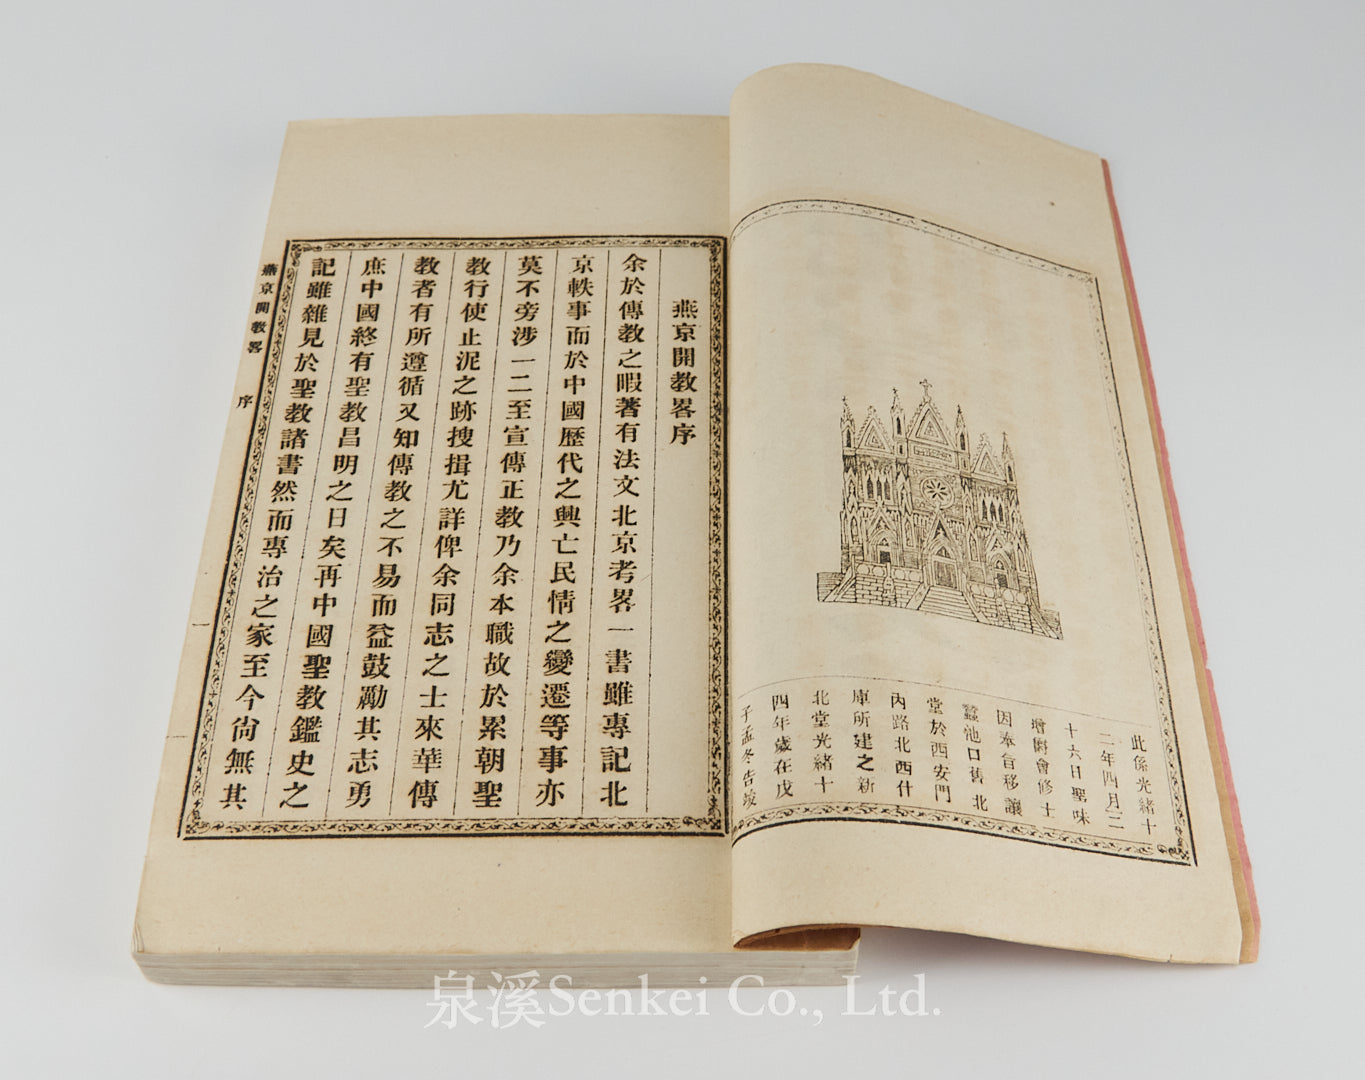 此係光緒十
二年四月二
十六日聖味
增爵會修士
因奉旨移讓
蠶池口舊北
堂於西安門
內路北西什
庫所建之新
北堂光緒十
四年歲在戊
子孟冬告竣
燕京開教畧序
余於傳教之暇著有法文北京考畧一書雖專記北
京軼事而於中國歷代之興亡民情之變遷等事亦
莫不旁涉一二至宣傳正教乃余本職故於累朝聖
教行使止泥之跡搜揖尤詳俾余同志之士來華傳
教者有所遵循又知傳教之不易而益鼓勵其志勇
庶中國終有聖教昌明之日矣再中國聖教鑑史之
記雖雜見於聖教諸書然而專治之家至今尙無其
燕京開教畧 序
泉溪Senkei Co., Ltd.